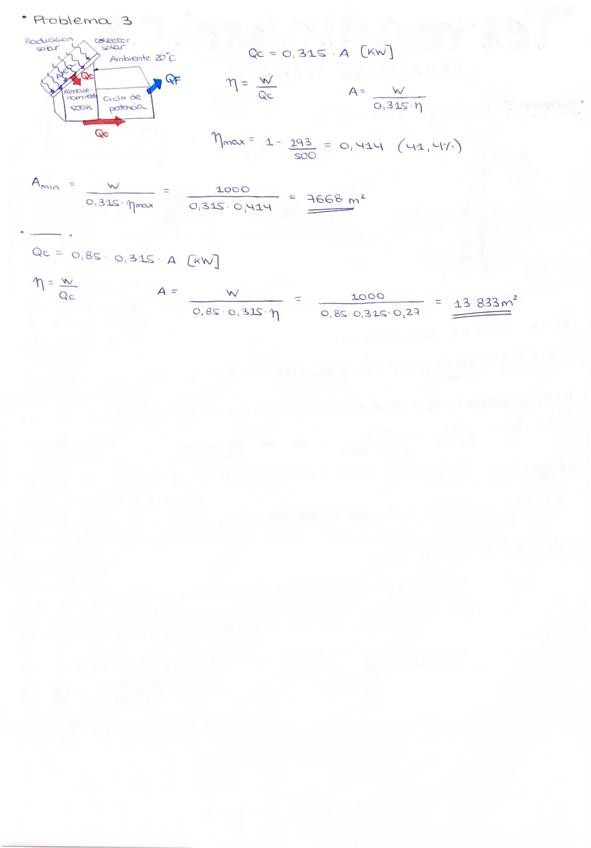 • Problema 3
Radiación solar
colector solar
Ambiente 20°C
Qc
QF
500K
Ciclo de potencia
Qc
Qc = 0,315 · A [KW]
η = W / Qc
A = W / 0,315·η
ηmax = 1 - 293 / 500 = 0,414 (41,4%)
Amin = W / 0,315·ηmax = 1000 / 0,315·0,414 = 7668 m²
Qc = 0,85 · 0,315 · A [KW]
η = W / Qc
A = W / 0,85·0,315·η = 1000 / 0,85·0,315·0,27 = 13 833 m²